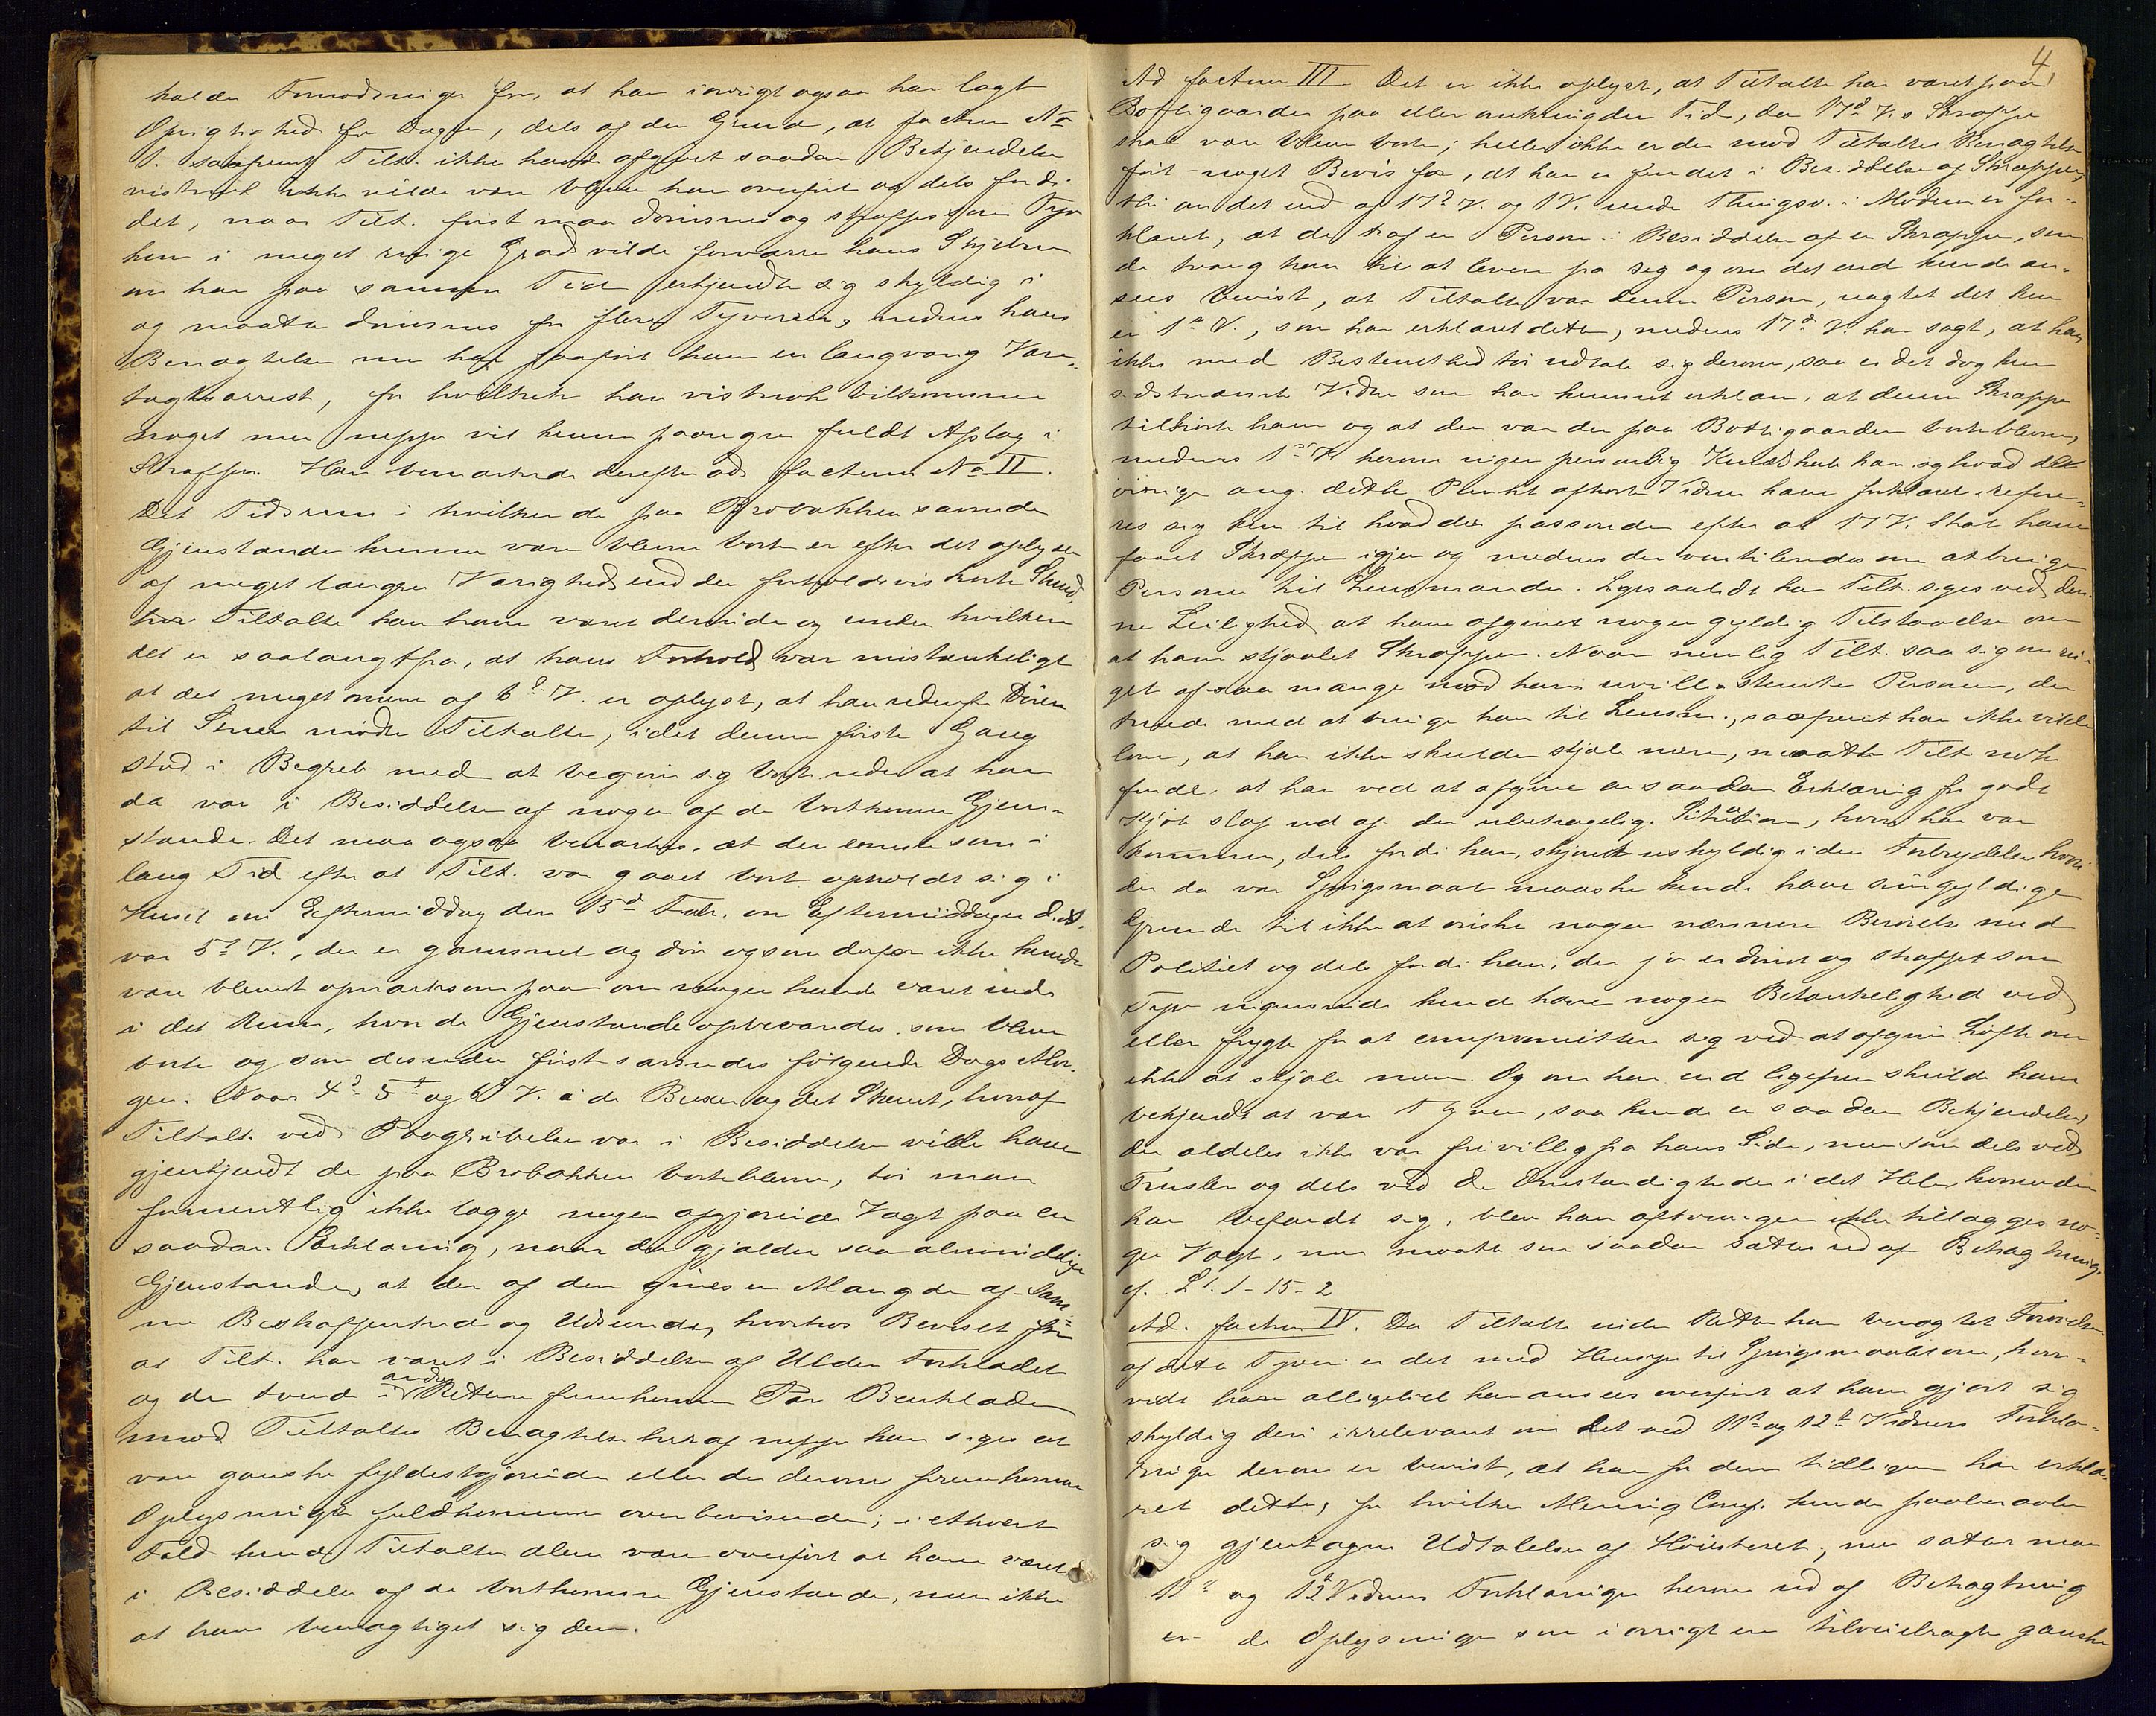 holde Formodninger for, at han iøvrigt ogsaa har lagt
Oprigtighed for Dagen, dels af den Grund, at factum No
1. saafremt Tilt. ikke havde afgivet saadan Bekjendelse
vistnok ikke vilde være bleven ham overført og dels fordi
det, naar Tilt. først maa dømmes og straffes som Tyv
kun i meget ringe Grad vilde forværre hans Stilling
om han paa samme Tid erkjendte sig skyldig i
og maatte dømmes for flere Tyverier, medens hans
Benægtelse nu har paaført ham en langvarig Vare-
tægtsarrest, for hvilken han vistnok tilkommer
noget men neppe vil kunne paaregne fuldt Afslag i
Straffen. Han bemærkede derefter ad factum No II.
Det Tidsrum i hvilken de paa Brobakken savnede
Gjenstande kunne være blevne borte er efter det oplyste
af meget længere Varighed end den forholdsvis korte Stund,
Tiltalte kan have været derinde og under hvilken
det er saalangtfra, at hans Forhold var mistænkeligt
at det meget mere af 6te V. er oplyst, at han udenfor Døren
til Stuen mødte Tiltalte, idet denne første Gang
stod i Begreb med at begive sig bort uden at han
da var i Besiddelse af nogen af de bortkomne Gjen-
stande. Det maa ogsaa bemærkes, at den eneste som i
lang Tid efter at Tilt. var gaaet bort opholdt sig i
Huset om Eftermiddag den 13d Febr. om Eftermiddagen
var 5te V., der er gammel og døv og som derfor ikke kunde
være blevet opmærksom paa om nogen havde været inde
i det Rum, hvor de Gjenstande opbevaredes som blev
borte og som desuden først savnedes følgende Dags Mor-
gen. Naar 4de 5te og 6te V. i de Buxer og det Skaut, hvoraf
Tiltalte ved Paagribelsen var i Besiddelse ville have
gjenkjendt de paa Brobakken bortblevne, tør man
formentlig ikke lægge nogen afgjørende Vægt paa en
saadan Forklaring, naar det gjælder saa almindelige
Gjenstande, at der af dem gives en Mængde af sam-
me Beskaffenhed og Udseende, hvorhos Beviset for
at Tilt. har været i Besiddelse af Ulden Forklædet
og de tvende andre i Retten fremkomne Par Benklæder
mod Tiltaltes Benægtelse heraf neppe kan siges at
være ganske fyldestgjørende eller de derom fremkomne
Oplysninger fuldkommen overbevisende; i ethvert
Fald kunde Tiltalte alene være overført at have været
i Besiddelse af de bortkomne Gjenstande, men ikke
at have bemægtiget sig dem.
4
Ad factum III. Det er ikke oplyst, at Tiltalte har været paa
Bottigaarden paa eller omkring den Tid, da 17d V.s Skreppe
skal være bleven borte; heller ikke er der mod Tiltaltes Benægtelse
ført noget Bevis for, at han er fundet i Besiddelse af Skreppen,
thi andet end af 17d V. og 1 V. under Thingsv. i Modum er for-
klaret, at de traf en Person i Besiddelse af en Skreppe, som
de tvang ham til at levere fra sig og om det end kunde an-
sees bevist, at Tiltalte var denne Person, uagtet det kun
er 1ste V., som har erklæret dette, medens 17d V. har sagt, at han
ikke med Bestemthed tør udtale sig derom, saa er det dog kun
sidstnævnte Vidne som har kunnet erklære, at denne Skreppe
tilhørte ham og at den var den paa Bottigaarden bortblevne,
medens 1ste V. herom ingen personlig Kundskab har og hvad de
øvrige ang. dette Punkt afhørte Vidner have forklaret refere-
res sig kun til hvad der passerede efter at 17 V. skal have
faaet Skreppen igjen og medens der ventileredes om at bringe
Personen til Lensmanden. Ligesaalidt kan Tilt. siges ved den-
ne Leilighed at have afgivet nogen gyldig Tilstaaelse om
at have stjaalet Skreppen. Naar nemlig Tilt. saa sig omrin-
get af saa mange mod ham uvilligt stemte Personer, der
truede med at bringe ham til Lensm., saafremt han ikke vilde
love, at han ikke skulde stjæle mere, maatte Tilt nok
finde, at han ved at afgive en saadan Erklæring for godt
Kjøb slap ud af den ubehagelige Situation, hvori han var
kommen, dels fordi han, skjønt uskyldig i den Forbrydelse hvori
der da var Spørgsmaal maaske kunde have sine gyldige
Grunde til ikke at ønske nogen nærmere Berørelse med
Politiet og dels fordi han, der jo er dømt og straffet som
Tyv ingensinde kunde have nogen Betænkelighed ved
eller frygte for at compromittere sig ved at afgive Løfte om
ikke at stjæle mere. Og om han end ligefrem skulde have
bekjendt at være Tyven, saa kunde en saadan Bekjendelse,
der aldeles ikke var frivillig fra hans Side, men som dels ved
Trusler og dels ved de Omstændigheder i det Hele, hvorunder
han befandt sig, blev ham aftvungen ikke tillægges no-
gen Vægt, men maatte som saadan sættes ud af Betragtning.
cf. L. 1-15-2
Ad. factum IV. Da Tiltalte inden Retten har benægtet Forøvelsen
af dette Tyveri er det med Hensyn til Spørgsmaalet om, hvor-
vidt han alligevel kan ansees overført at have gjort sig
skyldig deri irrelevant om det ved 11te og 12te Vidners Forkla-
ringer derom er bevist, at han for dem tidligere har erklæ-
ret dette, for hvilken Mening Comp. kunde paaberaabe
sig gjentagne Udtalelser af Høiesteret; men sætter man
11te og 12te Vidners Forklaringer herom ud af Betragtning
er de Oplysninger som iøvrigt ere tilveiebragte ganske